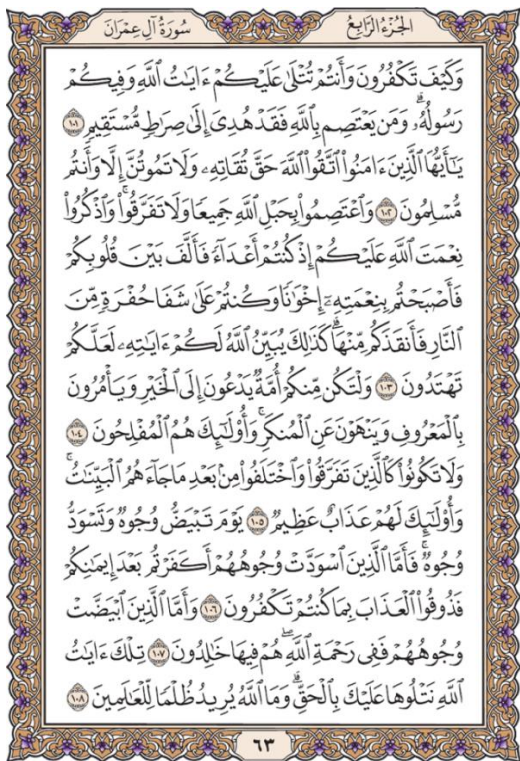 الجُزْءُ الرَّابِعُ
سُورَةُ آلِ عِمْرَان
وَكَيْفَ تَكْفُرُونَ وَأَنتُمْ تُتْلَىٰ عَلَيْكُمْ ءَايَٰتُ ٱللَّهِ وَفِيكُمْ
رَسُولُهُۥۗ وَمَن يَعْتَصِم بِٱللَّهِ فَقَدْ هُدِىَ إِلَىٰ صِرَٰطٍ مُّسْتَقِيمٍ ١٠١
يَٰٓأَيُّهَا ٱلَّذِينَ ءَامَنُوا۟ ٱتَّقُوا۟ ٱللَّهَ حَقَّ تُقَاتِهِۦ وَلَا تَمُوتُنَّ إِلَّا وَأَنتُم
مُّسْلِمُونَ ١٠٢ وَٱعْتَصِمُوا۟ بِحَبْلِ ٱللَّهِ جَمِيعًا وَلَا تَفَرَّقُوا۟ۚ وَٱذْكُرُوا۟
نِعْمَتَ ٱللَّهِ عَلَيْكُمْ إِذْ كُنتُمْ أَعْدَآءً فَأَلَّفَ بَيْنَ قُلُوبِكُمْ
فَأَصْبَحْتُم بِنِعْمَتِهِۦٓ إِخْوَٰنًا وَكُنتُمْ عَلَىٰ شَفَا حُفْرَةٍ مِّنَ
ٱلنَّارِ فَأَنقَذَكُم مِّنْهَاۗ كَذَٰلِكَ يُبَيِّنُ ٱللَّهُ لَكُمْ ءَايَٰتِهِۦ لَعَلَّكُمْ
تَهْتَدُونَ ١٠٣ وَلْتَكُن مِّنكُمْ أُمَّةٌ يَدْعُونَ إِلَى ٱلْخَيْرِ وَيَأْمُرُونَ
بِٱلْمَعْرُوفِ وَيَنْهَوْنَ عَنِ ٱلْمُنكَرِۚ وَأُو۟لَٰٓئِكَ هُمُ ٱلْمُفْلِحُونَ ١٠٤
وَلَا تَكُونُوا۟ كَٱلَّذِينَ تَفَرَّقُوا۟ وَٱخْتَلَفُوا۟ مِنۢ بَعْدِ مَا جَآءَهُمُ ٱلْبَيِّنَٰتُۚ
وَأُو۟لَٰٓئِكَ لَهُمْ عَذَابٌ عَظِيمٌ ١٠٥ يَوْمَ تَبْيَضُّ وُجُوهٌ وَتَسْوَدُّ
وُجُوهٌۚ فَأَمَّا ٱلَّذِينَ ٱسْوَدَّتْ وُجُوهُهُمْ أَكَفَرْتُم بَعْدَ إِيمَٰنِكُمْ
فَذُوقُوا۟ ٱلْعَذَابَ بِمَا كُنتُمْ تَكْفُرُونَ ١٠٦ وَأَمَّا ٱلَّذِينَ ٱبْيَضَّتْ
وُجُوهُهُمْ فَفِى رَحْمَةِ ٱللَّهِۖ هُمْ فِيهَا خَٰلِدُونَ ١٠٧ تِلْكَ ءَايَٰتُ
ٱللَّهِ نَتْلُوهَا عَلَيْكَ بِٱلْحَقِّۗ وَمَا ٱللَّهُ يُرِيدُ ظُلْمًا لِّلْعَٰلَمِينَ ١٠٨
٦٣